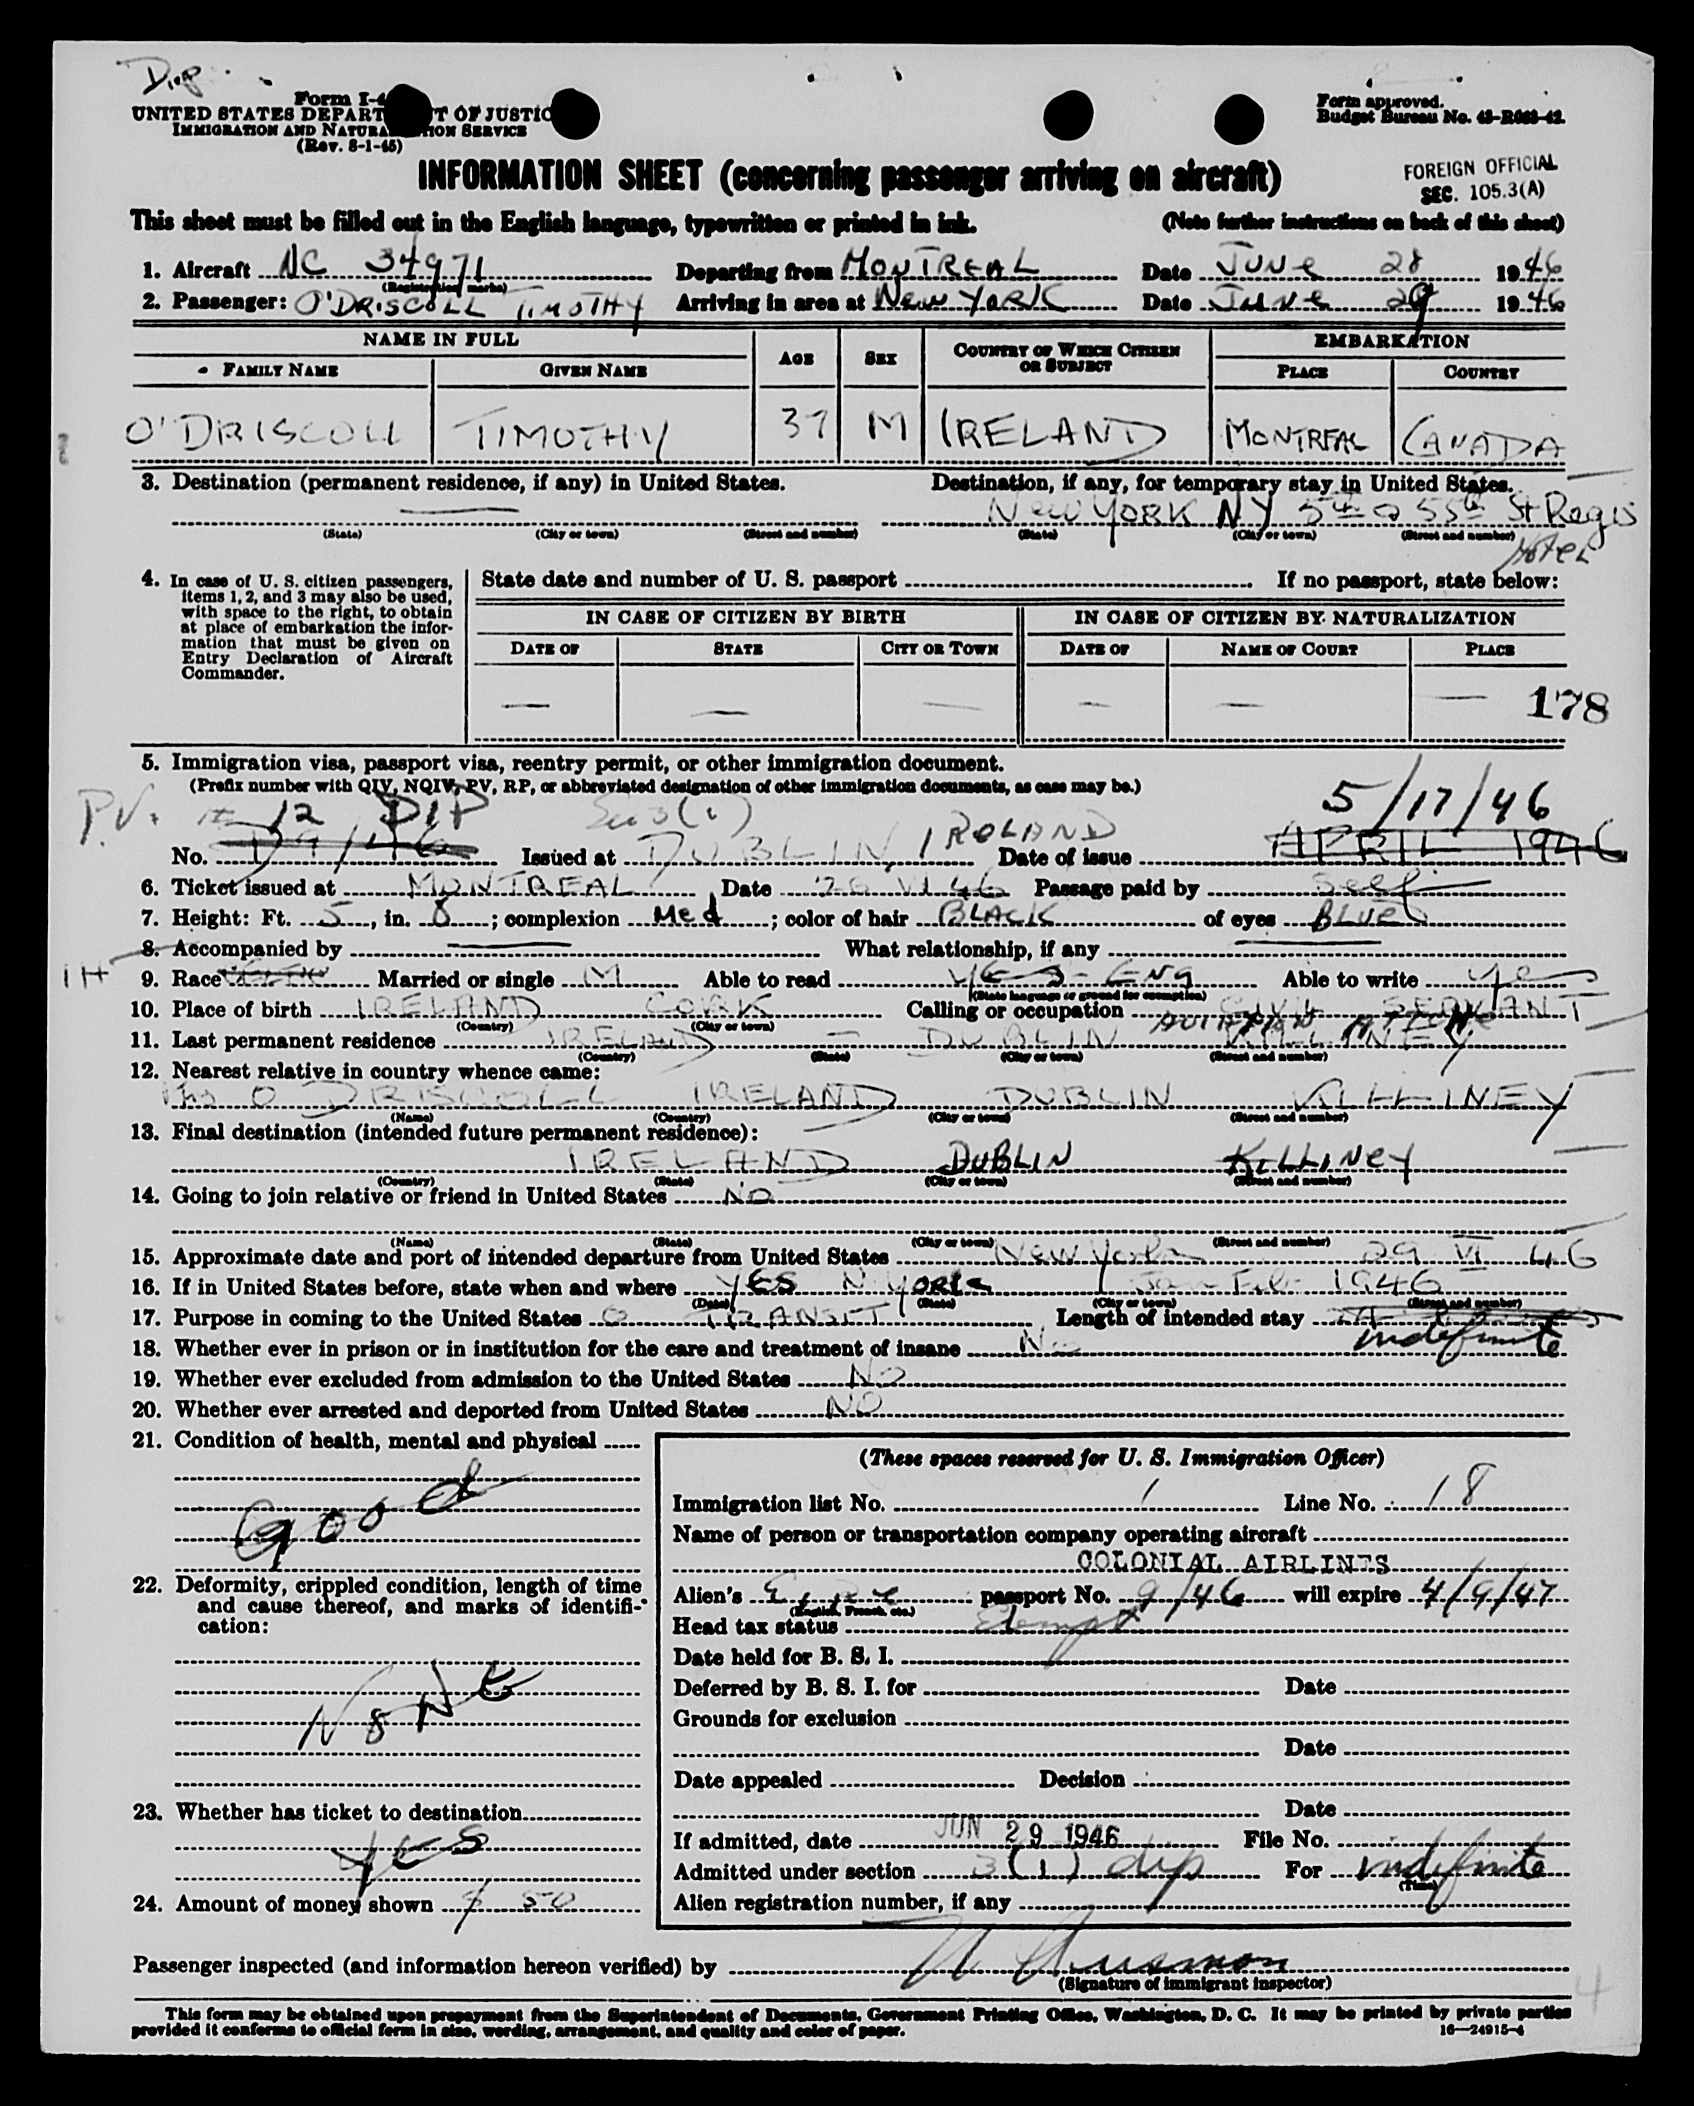 Dip
Form I-4
UNITED STATES DEPART T OF JUSTIC
IMMIGRATION AND NATURA TION SERVICE
(Rev. 8-1-45)
Form approved.
Budget Bureau No. 43-R063-42.
INFORMATION SHEET (concerning passenger arriving on aircraft)
FOREIGN OFFICIAL
SEC. 105.3(A)
This sheet must be filled out in the English language, typewritten or printed in ink. (Note further instructions on back of this sheet)
1. Aircraft NC 34971 Departing from MONTREAL Date JUNE 28 1946
(Registration marks)
2. Passenger: O'DRISCOLL TIMOTHY Arriving in area at New YORK Date June 29 1946
NAME IN FULL AGE SEX COUNTRY OF WHICH CITIZEN OR SUBJECT EMBARKATION
FAMILY NAME GIVEN NAME PLACE COUNTRY
O'DRISCOLL TIMOTHY 37 M IRELAND MONTREAL CANADA
3. Destination (permanent residence, if any) in United States. Destination, if any, for temporary stay in United States.
— New YORK NY 5th & 55th St Regis
(State) (City or town) (Street and number) (State) (City or town) (Street and number)
Hotel
4. In case of U. S. citizen passengers, items 1, 2, and 3 may also be used, with space to the right, to obtain at place of embarkation the information that must be given on Entry Declaration of Aircraft Commander.
State date and number of U. S. passport If no passport, state below:
IN CASE OF CITIZEN BY BIRTH IN CASE OF CITIZEN BY NATURALIZATION
DATE OF STATE CITY OR TOWN DATE OF NAME OF COURT PLACE
— — — — — — 178
5. Immigration visa, passport visa, reentry permit, or other immigration document.
(Prefix number with QIV, NQIV, PV, RP, or abbreviated designation of other immigration documents, as case may be.)
P.V. # 12 DIP Sec 3(1) 5/17/46
No. D9/46 Issued at DUBLIN, IRELAND Date of issue APRIL 1946
6. Ticket issued at MONTREAL Date 26 VI 46 Passage paid by Self
7. Height: Ft. 5, in. 8; complexion Med; color of hair BLACK of eyes BLUE
8. Accompanied by — What relationship, if any —
IH
9. Race Married or single M Able to read YES - ENg Able to write yes
(State language or ground for exemption)
10. Place of birth IRELAND CORK Calling or occupation CIVIL SERVANT
(Country) (City or town)
11. Last permanent residence IRELAND — DUBLIN KILLINEY
(Country) (State) (City or town) (Street and number)
12. Nearest relative in country whence came:
Mrs O DRISCOLL IRELAND DUBLIN KILLINEY
(Name) (Country) (City or town) (Street and number)
13. Final destination (intended future permanent residence):
IRELAND DUBLIN KILLINEY
(Country) (State) (City or town) (Street and number)
14. Going to join relative or friend in United States NO
(Name) (State) (City or town) (Street and number)
15. Approximate date and port of intended departure from United States New York 29 VI 46
16. If in United States before, state when and where YES N York Jan Feb 1946
(Date) (State) (City or town) (Street and number)
17. Purpose in coming to the United States O TRANSIT Length of intended stay indefinite
18. Whether ever in prison or in institution for the care and treatment of insane No
19. Whether ever excluded from admission to the United States NO
20. Whether ever arrested and deported from United States NO
21. Condition of health, mental and physical
Good
22. Deformity, crippled condition, length of time and cause thereof, and marks of identification:
NONE
23. Whether has ticket to destination
yes
24. Amount of money shown $ 50
(These spaces reserved for U. S. Immigration Officer)
Immigration list No. 1 Line No. 18
Name of person or transportation company operating aircraft
COLONIAL AIRLINES
Alien's Eire passport No. 9/46 will expire 4/9/47
(English, French, etc.)
Head tax status Exempt
Date held for B. S. I.
Deferred by B. S. I. for Date
Grounds for exclusion
Date
Date appealed Decision
Date
If admitted, date JUN 29 1946 File No.
Admitted under section 3(1) dip For indefinite
(Time)
Alien registration number, if any
Passenger inspected (and information hereon verified) by
(Signature of immigrant inspector)
This form may be obtained upon prepayment from the Superintendent of Documents, Government Printing Office, Washington, D. C. It may be printed by private parties
provided it conforms to official form in size, wording, arrangement, and quality and color of paper.
16—24915-4
4